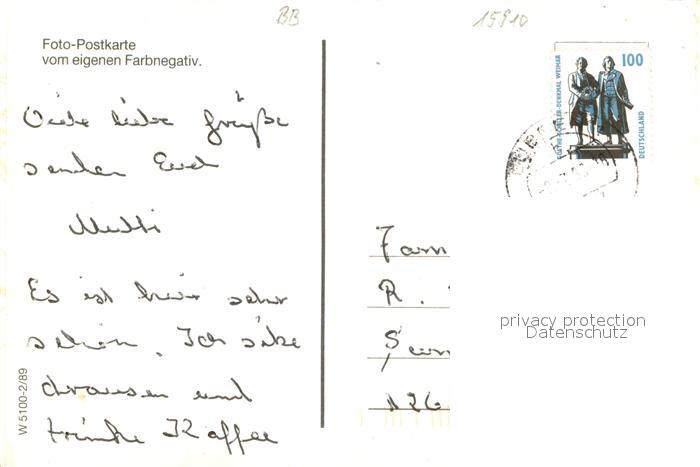 BB
15910
Foto-Postkarte
vom eigenen Farbnegativ.
100
GOETHE-SCHILLER-DENKMAL WEIMAR
DEUTSCHLAND
Viele liebe Grüße
senden Euch
Mutti
Es ist hier sehr
schön. Ich sitze
draussen und
trinke Kaffee
Fam
R.
126
privacy protection
Datenschutz
W 5100-2/89